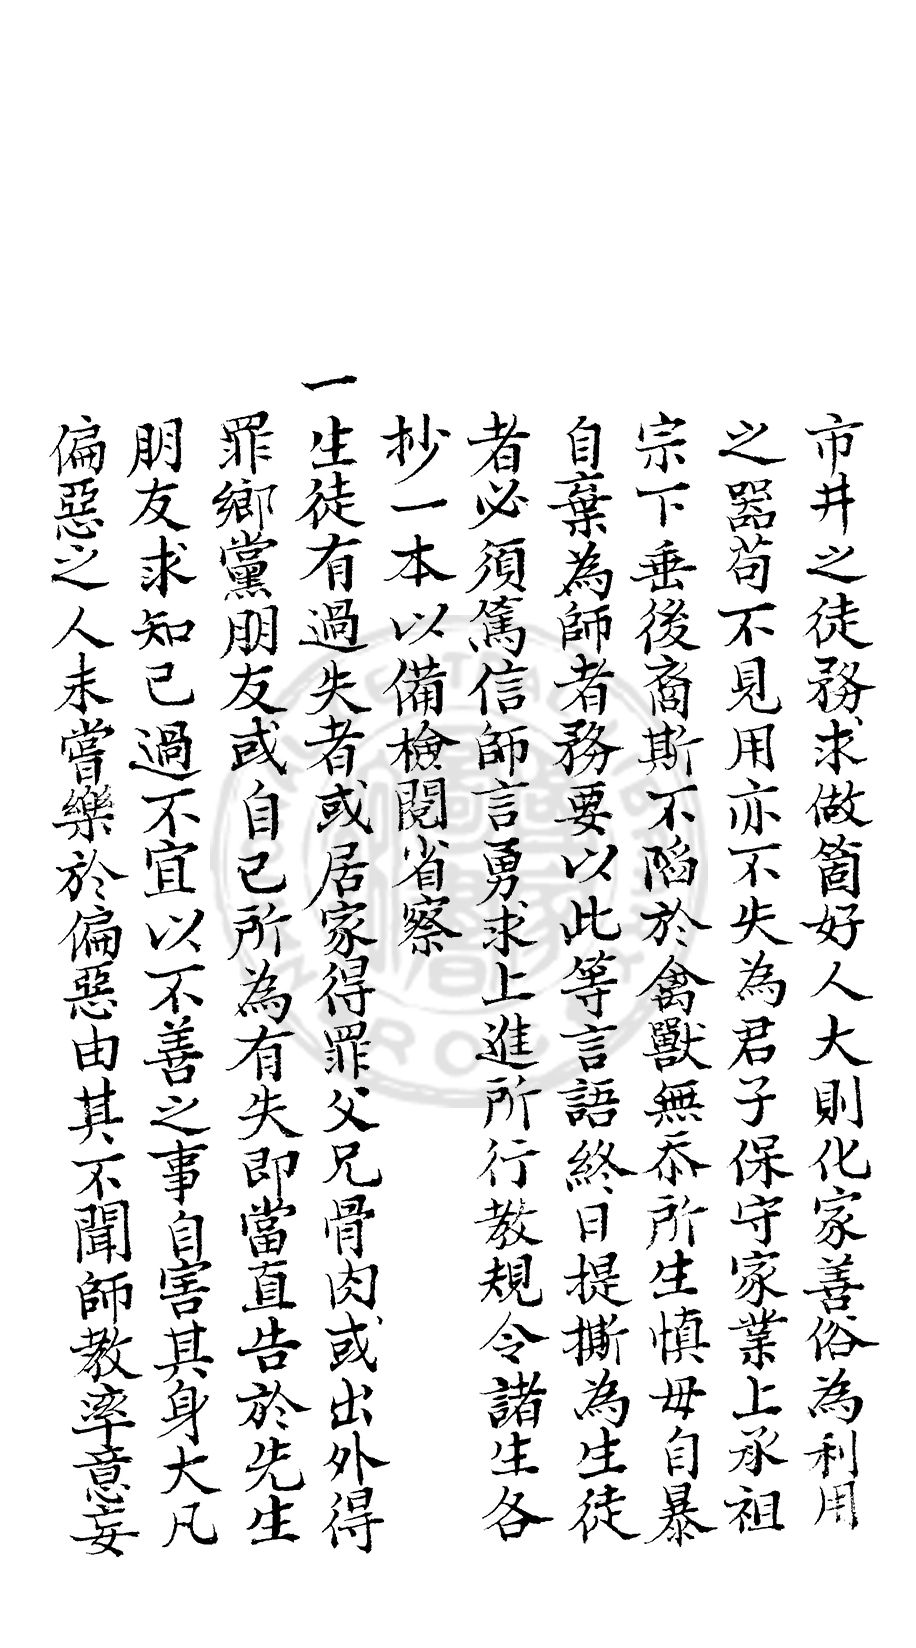 市井之徒務求做箇好人大則化家善俗為利用
之器苟不見用亦不失為君子保守家業上承祖
宗下垂後裔斯不陷於禽獸無忝所生慎毋自暴
自棄為師者務要以此等言語終日提撕為生徒
者必須篤信師言勇求上進所行教規令諸生各
抄一本以備檢閱省察
一生徒有過失者或居家得罪父兄骨肉或出外得
罪鄉黨朋友或自己所為有失即當直告於先生
朋友求知己過不宜以不善之事自害其身大凡
偏惡之人未嘗樂於偏惡由其不聞師教率意妄